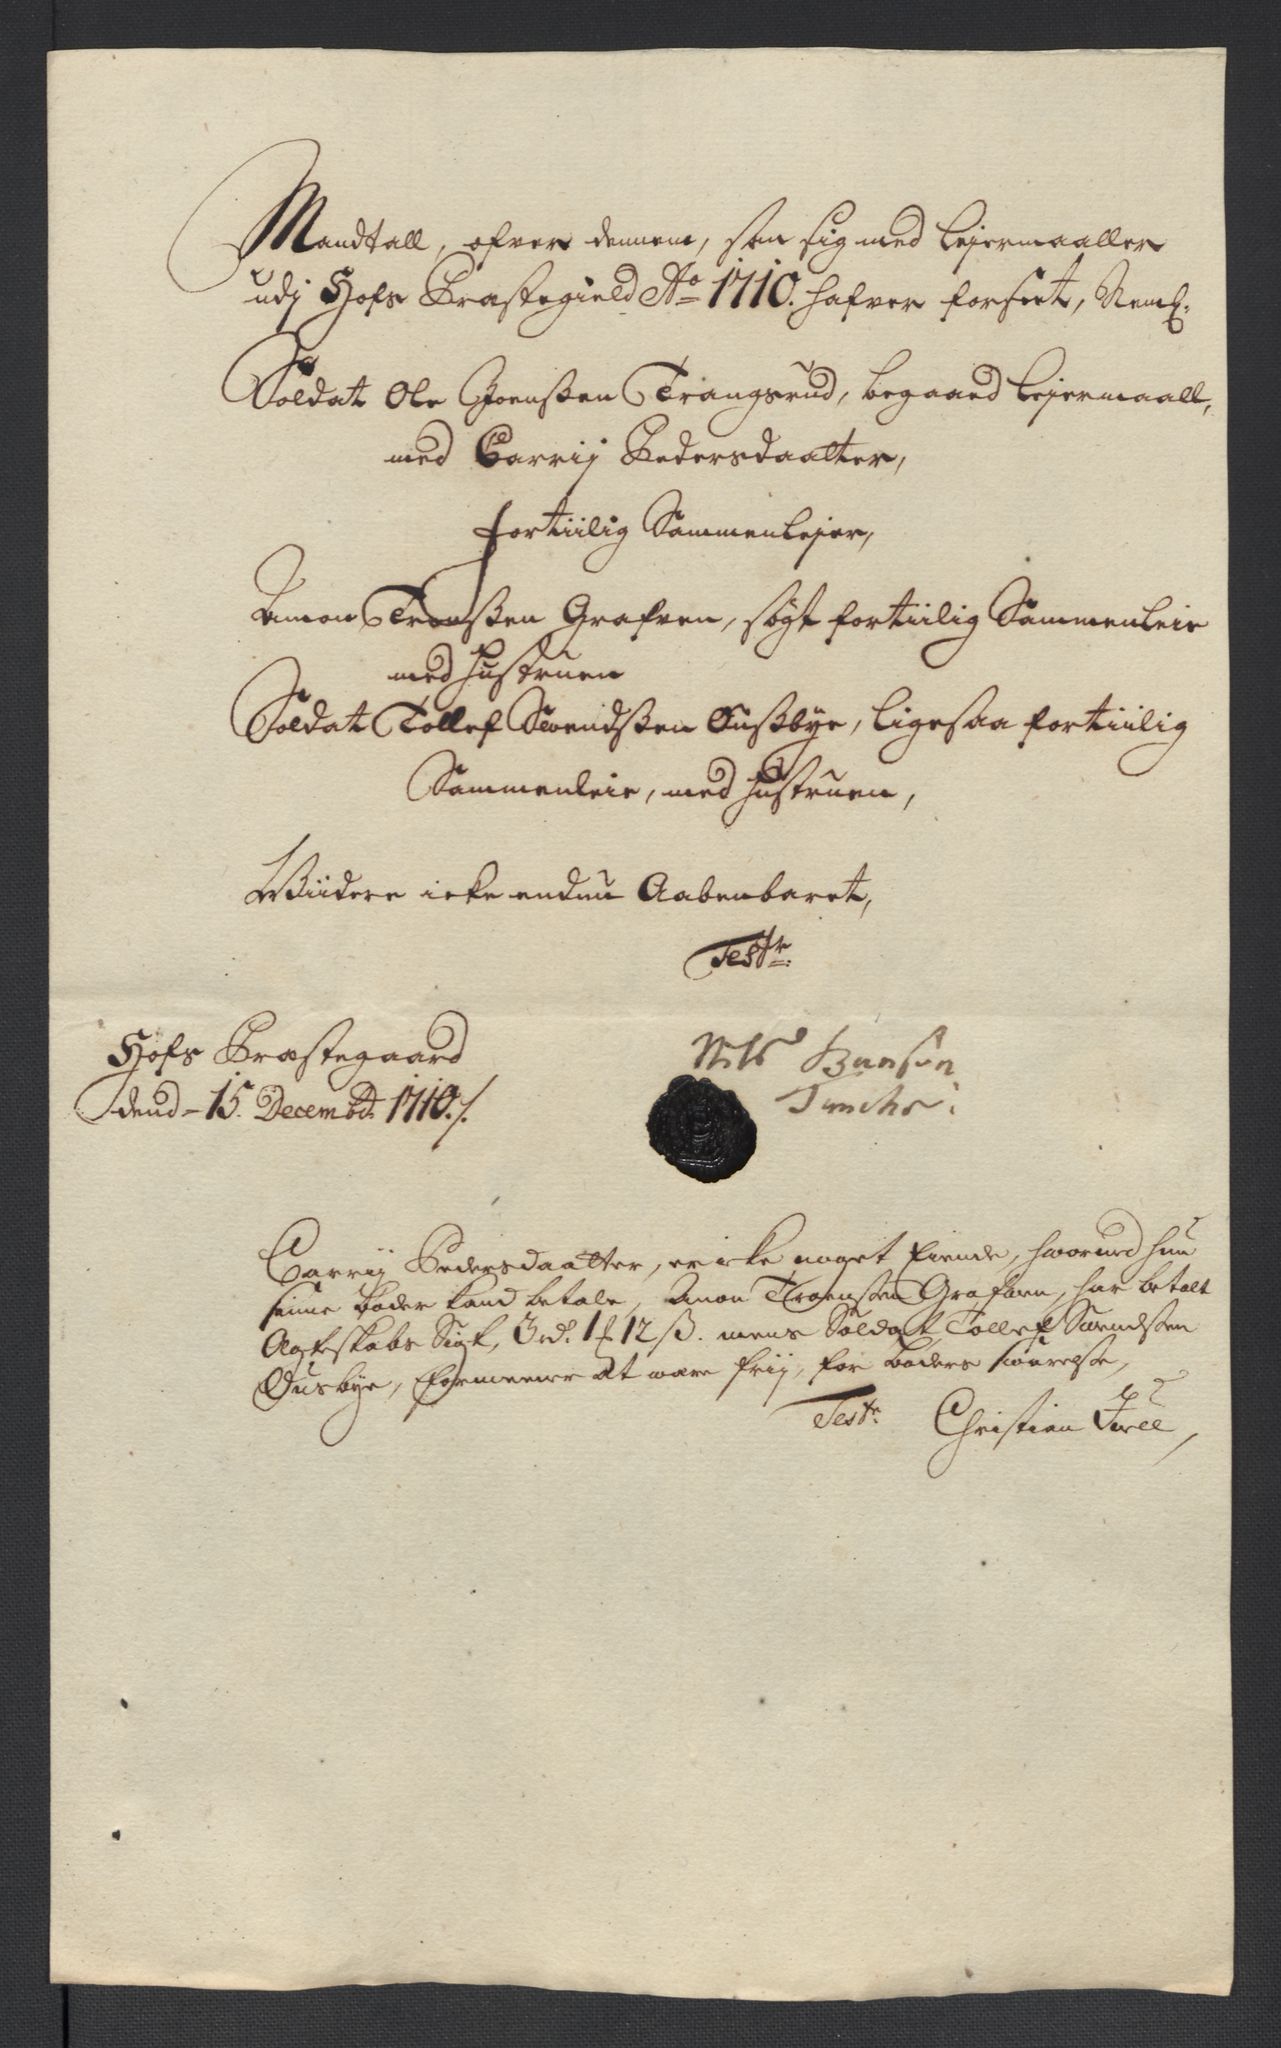 Mandtall, ofver dennem, som sig med Lejermaaller
udj Hofs Præstegield Ao 1710. hafver forseet, Neml:
Soldat Ole Joenßen Trangsrud, begaaed Lejermaall,
med Carrij Pedersdaatter,
fortiilig Sammenlejer,
Amon Tronßen Grafven, søgt fortiilig Sammenleie
med Hustruen
Soldat Tollef Svendßen Ousbye, Ligesaa fortiilig
Sammenleie, med Hustruen,
Viidere icke endnu Aabenbaret,
Teste:
Hofs Præstegaard
dend 15. Decembr. 1710./.
Nils
Carrij Pedersdaatter, er icke noget Eiende, hvormed hun
sinne Bøder kand betale, Amon Troensen Grafven, har betalt
Ægteskabs Sigt, 3 rdr. 1 ort 12 ß. mens Soldat Tollef Svendsen
Ousbye, formener at være frij, for Bøders svarelse,
Teste. Christian Juell,